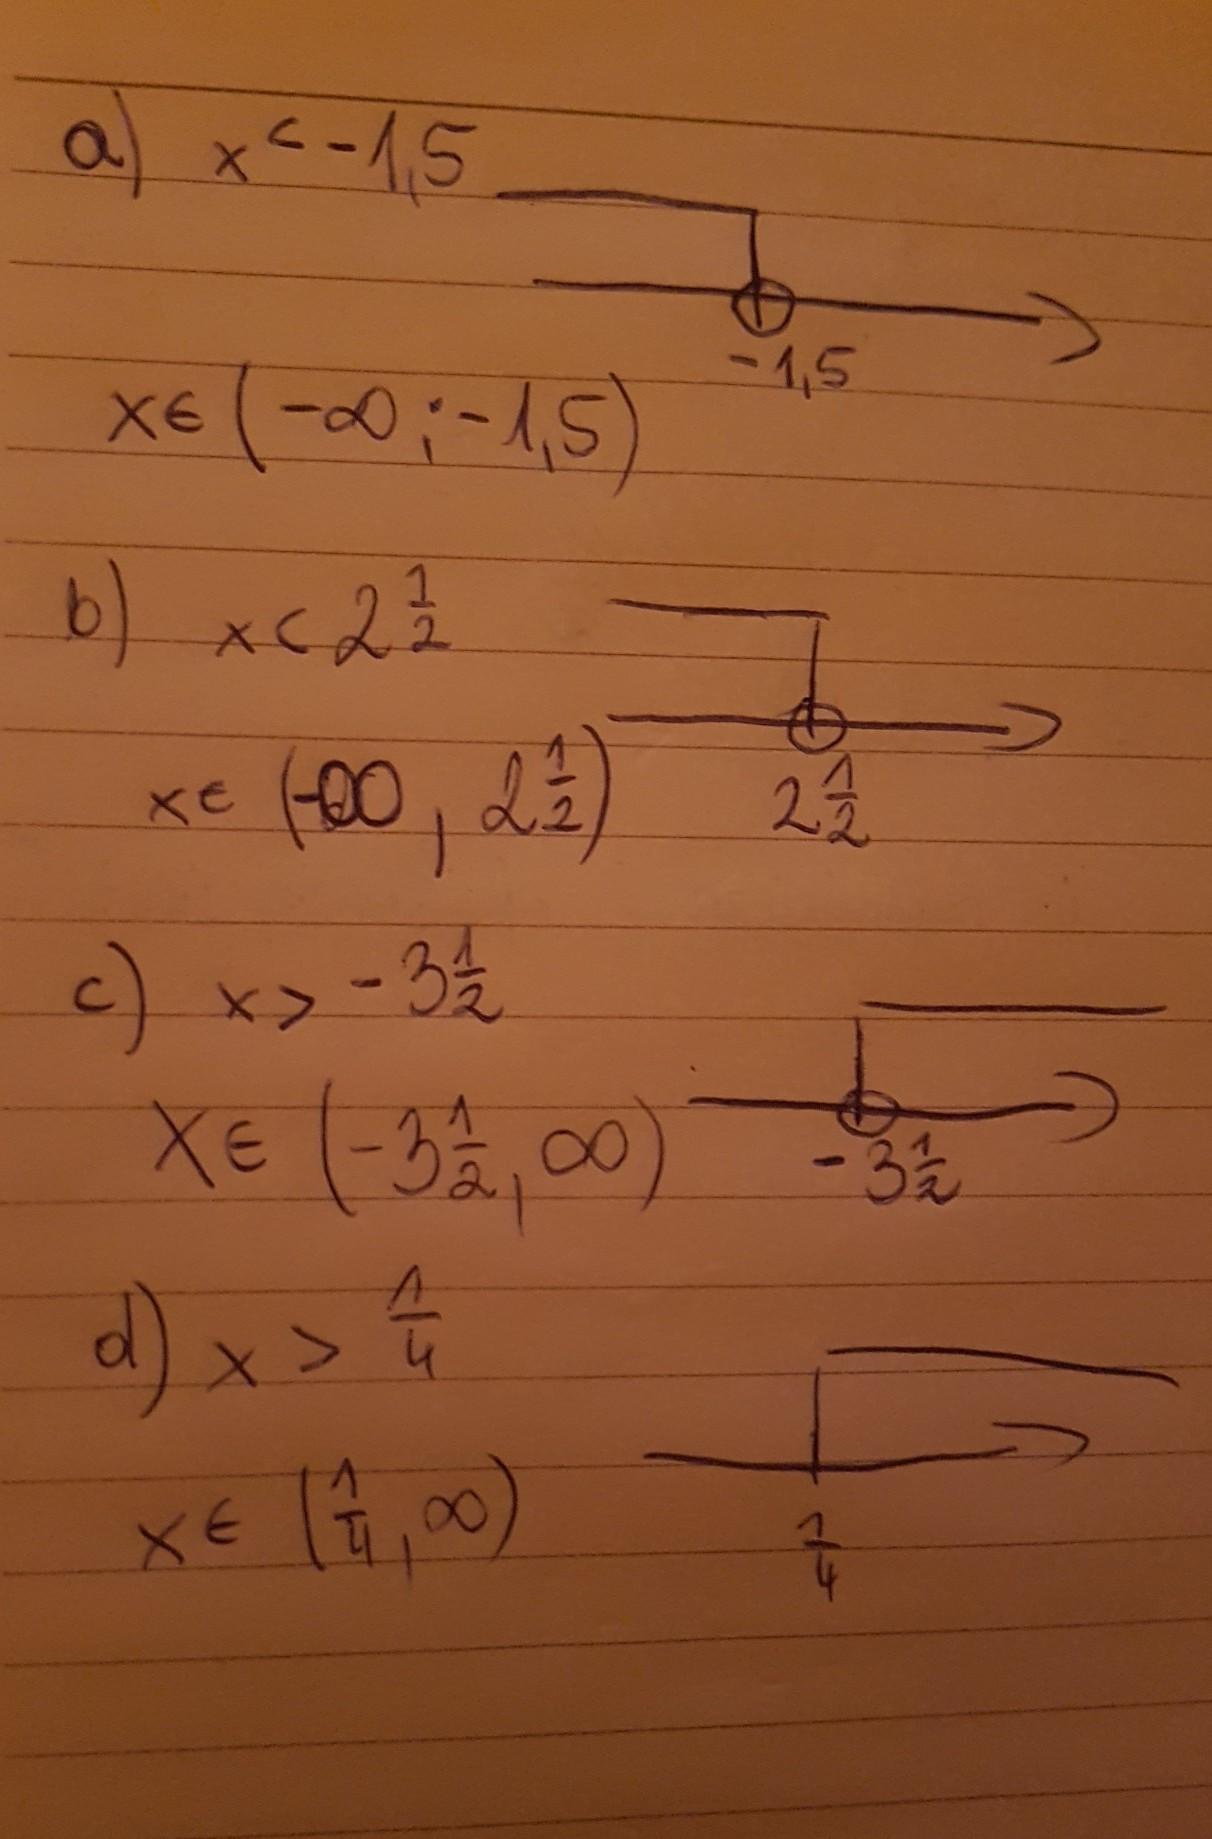 a) x < -1,5
-1,5
x∈(-∞;-1,5)
b) x < 2 1/2
x∈(-∞, 2 1/2)
2 1/2
c) x > -3 1/2
x∈(-3 1/2, ∞)
-3 1/2
d) x > 1/4
x∈(1/4, ∞)
1/4